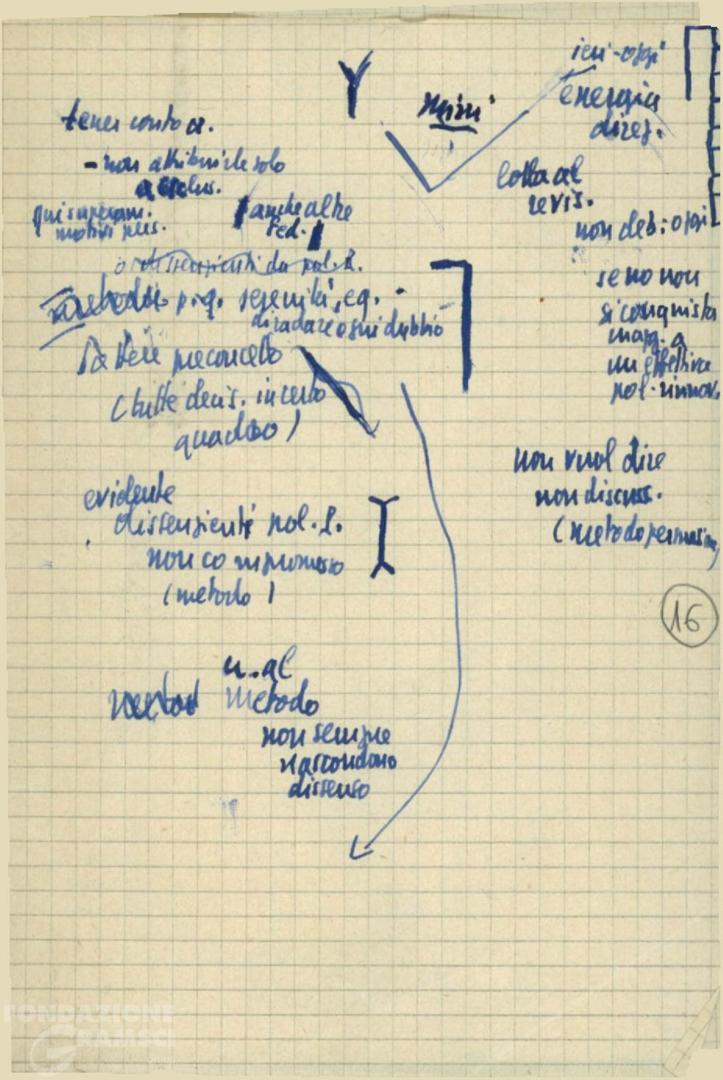 tener conto
- non attribuirle solo
qui superam.
motivi pers.
anche altre
fed.
o dissenzienti da pol. l.
p. q. serenità, eq.
diradare ogni dubbio
preconcetto
(tutte decis. in certo
quadro)
evidente
dissenzienti pol. l.
non compromesso
(metodo)
metodo
non sempre
nascondono
dissenso
ieri-oggi
energia
direz.
lotta al
revis.
non deb. oggi
se no non
si conquista
magg. a
un effettiva
pol. rinnov.
non vuol dire
non discuss.
(metodo persuasione)
16
FONDAZIONE
GRAMSCI